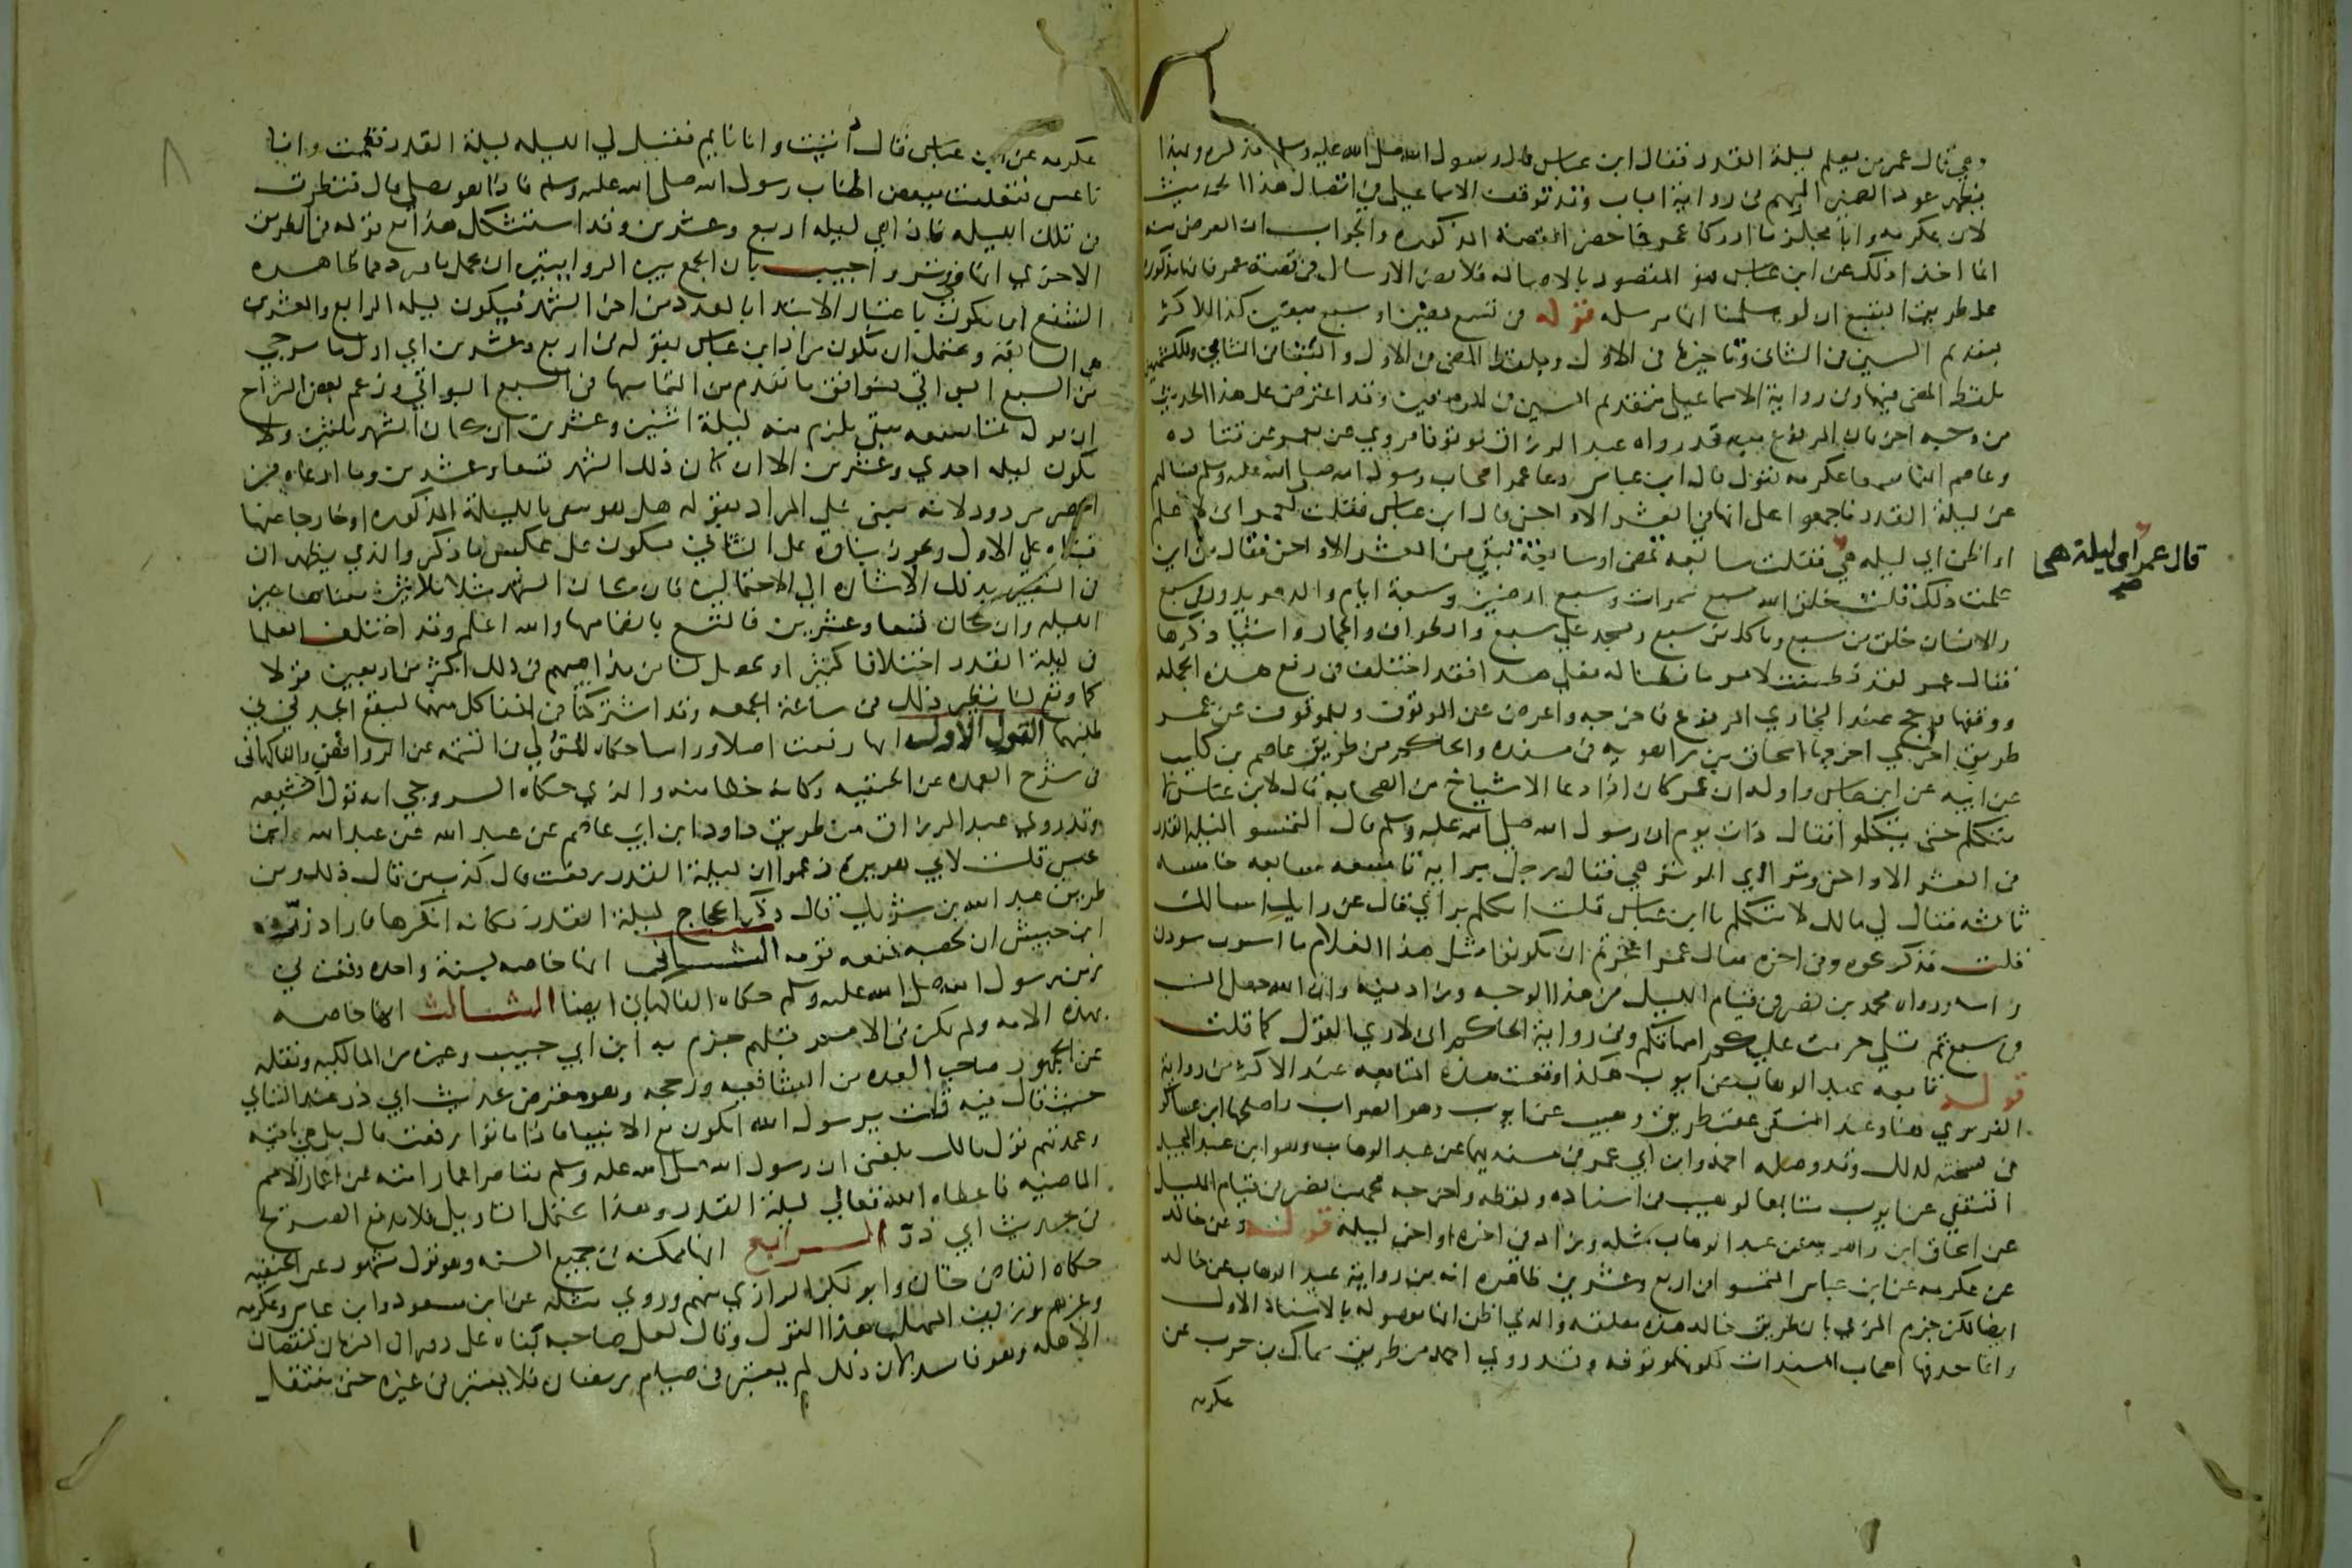 وهي قال عمر من يعلم ليلة القدر فقال ابن عباس قال رسول الله صلى الله عليه وسلم فذكره وبهذا
يظهر عود الضمير المبهم في رواية الباب وقد توقف الاسماعيلي في اتصال هذا الحديث
لان عكرمة وابا مجلز ما ادركا عمر فما حضرا القصة المذكورة والجواب ان الغرض منه
انما اخذا ذلك عن ابن عباس فهو المقصود بالاصالة فلا يضر الارسال في قصة عمر فانها مذكورة
على طريق التبع ان لو سلمنا انها مرسله قوله في تسع يمضين او سبع يبقين كذا للاكثر
بتقديم السين في الثاني وتاخيرها في الاول وبلفظ المضي في الاول والبقا في الثاني وللكشميهني
بلفظ المضي فيهما وفي رواية الاسماعيلي بتقديم السين في الموضعين وقد اعترض على هذا الحديث
من وجه اخر فان المرفوع منه قد رواه عبد الرزاق موقوفا فروي عن معمر عن قتاده
وعاصم انهما سمعا عكرمة يقول قال ابن عباس دعا عمر اصحاب رسول الله صلى الله عليه وسلم فسالهم
عن ليلة القدر فاجمعوا على انها في العشر الاواخر قال ابن عباس فقلت لعمر اني لاعلم
او اظن اي ليله هي فقلت سابعه تمضي او سابعة تبقى من العشر الاواخر فقال من اين
قال عمر اي ليلة هي صح
علمت ذلك قلت خلق الله سبع سموات وسبع ارضين وسبعة ايام والدهر يدور في سبع
والانسان خلق من سبع وياكل من سبع ويسجد على سبع والطواف والجمار واشيا ذكرها
فقال عمر لقد فطنت لامر ما فطنا له فعلى هذا فقد اختلف في رفع هذه الجملة
ووقفها فرجح عند البخاري المرفوع فاخرجه واعرض عن الموقوف وللموقوف عن عمر
طريق اخرى اخرجها اسحاق بن راهويه في مسنده والحاكم من طريق عاصم بن كليب
عن ابيه عن ابن عباس واوله ان عمر كان اذا دعا الاشياخ من الصحابة قال لابن عباس لا
تتكلم حتى يتكلموا فقال ذات يوم ان رسول الله صلى الله عليه وسلم قال التمسوا ليلة القدر
في العشر الاواخر وترا اي الوتر هي فقال رجل برايه تاسعه سابعه خامسه
ثالثه فقال لي مالك لا تتكلم يا ابن عباس قلت اتكلم برايي قال عن رايك اسالك
قلت فذكر نحوه وفي اخره فقال عمر اعجزتم ان تكونوا مثل هذا الغلام ما استوت شوون
راسه ورواه محمد بن نصر في قيام الليل من هذا الوجه وزاد فيه وان الله جعل النسب
في سبع ثم تلى حرمت عليكم امهاتكم وفي رواية الحاكم اني لاري القول كما قلت
قوله تابعه عبد الوهاب عن ايوب هكذا وقعت هذه المتابعه عند الاكثر من رواية
الفربري هنا وعند النسفي عقب طريق وهيب عن ايوب وهو الصواب واصلحها ابن عساكر
في نسخته لذلك وقد وصله احمد وابن ابي عمر في مسنديهما عن عبد الوهاب وهو ابن عبد المجيد
الثقفي عن ايوب متابعا لوهيب في اسناده ولفظه واخرجه محمد بن نصر في قيام الليل
عن اسحاق ابن راهويه عن عبد الوهاب مثله وزاد في اخره او اخر ليله قوله وعن خالد
عن عكرمه عن ابن عباس التمسوا في اربع وعشرين ظاهره انه من رواية عبد الوهاب عن خالد
ايضا لكن جزم المزي بان طريق خالد هذه معلقه والذي اظن انها موصوله بالاسناد الاول
وانما حذفها اصحاب المسندات لكونها موقوفه وقد روي احمد من طريق سماك بن حرب عن
عكرمه
عكرمه عن ابن عباس قال اتيت وانا نايم فقيل لي الليله ليلة القدر فقمت وانا
ناعس فتعلقت ببعض اطناب رسول الله صلى الله عليه وسلم فاذا هو يصلي قال فنظرت
في تلك الليله فاذا هي ليله اربع وعشرين وقد استشكل هذا مع قوله في الطريق
الاخري انها في وتر واجيب بان الجمع بين الروايتين ان يحمل ما ورد مما ظاهره
الشفع ان يكون باعتبار الابتدا بالعدد من اخر الشهر فيكون ليله الرابع والعشرين
هي السابعة ويحتمل ان يكون مراد ابن عباس بقوله في اربع وعشرين اي اول ما يرجي
من السبع البواقي فيوافق ما تقدم من التماسها في السبع البواقي وزعم بعض الشراح
ان قوله تاسعه تبقى يلزم منه ليلة اثنين وعشرين ان كان الشهر ثلثين ولا
تكون ليله احدي وعشرين الا ان كان ذلك الشهر تسعا وعشرين وما ادعاه من
الحصر مردود لانه مبني على المراد بقوله هل هو تبقى بالليلة المذكوره او خارجا عنها
فبناه على الاول ويجوز بناؤه على الثاني فيكون على عكس ما ذكر والذي يظهر ان
في التعبير بذلك الاشاره الي الاحتمالين فان كان الشهر مثلا ثلاثين فمعناها غير
الليله وان كان تسعا وعشرين فالتسع بانضمامها والله اعلم وقد اختلف العلما
في ليلة القدر اختلافا كثيرا وتحصل لنا من مذاهبهم في ذلك اكثر من اربعين قولا
كما وقع لنا نظير ذلك في ساعة الجمعه وقد اشتركتا في اخفا كل منهما ليقع الجد في
طلبهما القول الاول انها رفعت اصلا وراسا حكاه المتولي في التتمه عن الروافض والفاكهاني
في شرح العمده عن الحنفيه وكانه خطا منه والذي حكاه السروجي انه قول الشيعه
وقد روي عبد الرزاق من طريق داود ابن ابي عاصم عن عبد الله عن عبد الله ابن
عبس قلت لابي هريرة زعموا ان ليلة القدر رفعت قال كذب من قال ذلك ومن
طريق عبد الله بن شريك قال ذكر الحجاج ليلة القدر فكانه انكرها فاراد زر
ابن حبيش ان يحصبه فمنعه قومه الثاني انها خاصه بسنة واحده وقعت في
زمن رسول الله صلى الله عليه وسلم حكاه الفاكهاني ايضا الثالث انها خاصه
بهذه الامه ولم تكن في الامم قبلهم جزم به ابن ابي حبيب وغيره من المالكيه ونقله
عن الجمهور صاحب العده من الشافعيه ورجحه وهو معترض بحديث ابي ذر عند النساي
حيث قال فيه قلت يرسول الله اتكون مع الانبيا فاذا ماتوا رفعت قال بل هي باقيه
وعمدتهم قول مالك بلغني ان رسول الله صلى الله عليه وسلم تقاصر اعمار امته عن اعمار الامم
الماضيه فاعطاه الله تعالي ليلة القدر وهذا يحتمل التاويل فلا يدفع الصريح
في حديث ابي ذر الرابع انها ممكنه في جميع السنه وهو قول مشهور عن الحنفيه
حكاه القاضي خان وابو بكر الرازي منهم وروي مثله عن ابن مسعود وابن عباس وعكرمه
وغيرهم وزيف المهلب هذا القول وقال لعل صاحبه بناه على دوران الزمان لنقصان
الاهله وهو فاسد لان ذلك لم يعتبر في صيام رمضان فلا يعتبر في غيره حتى تنتقل